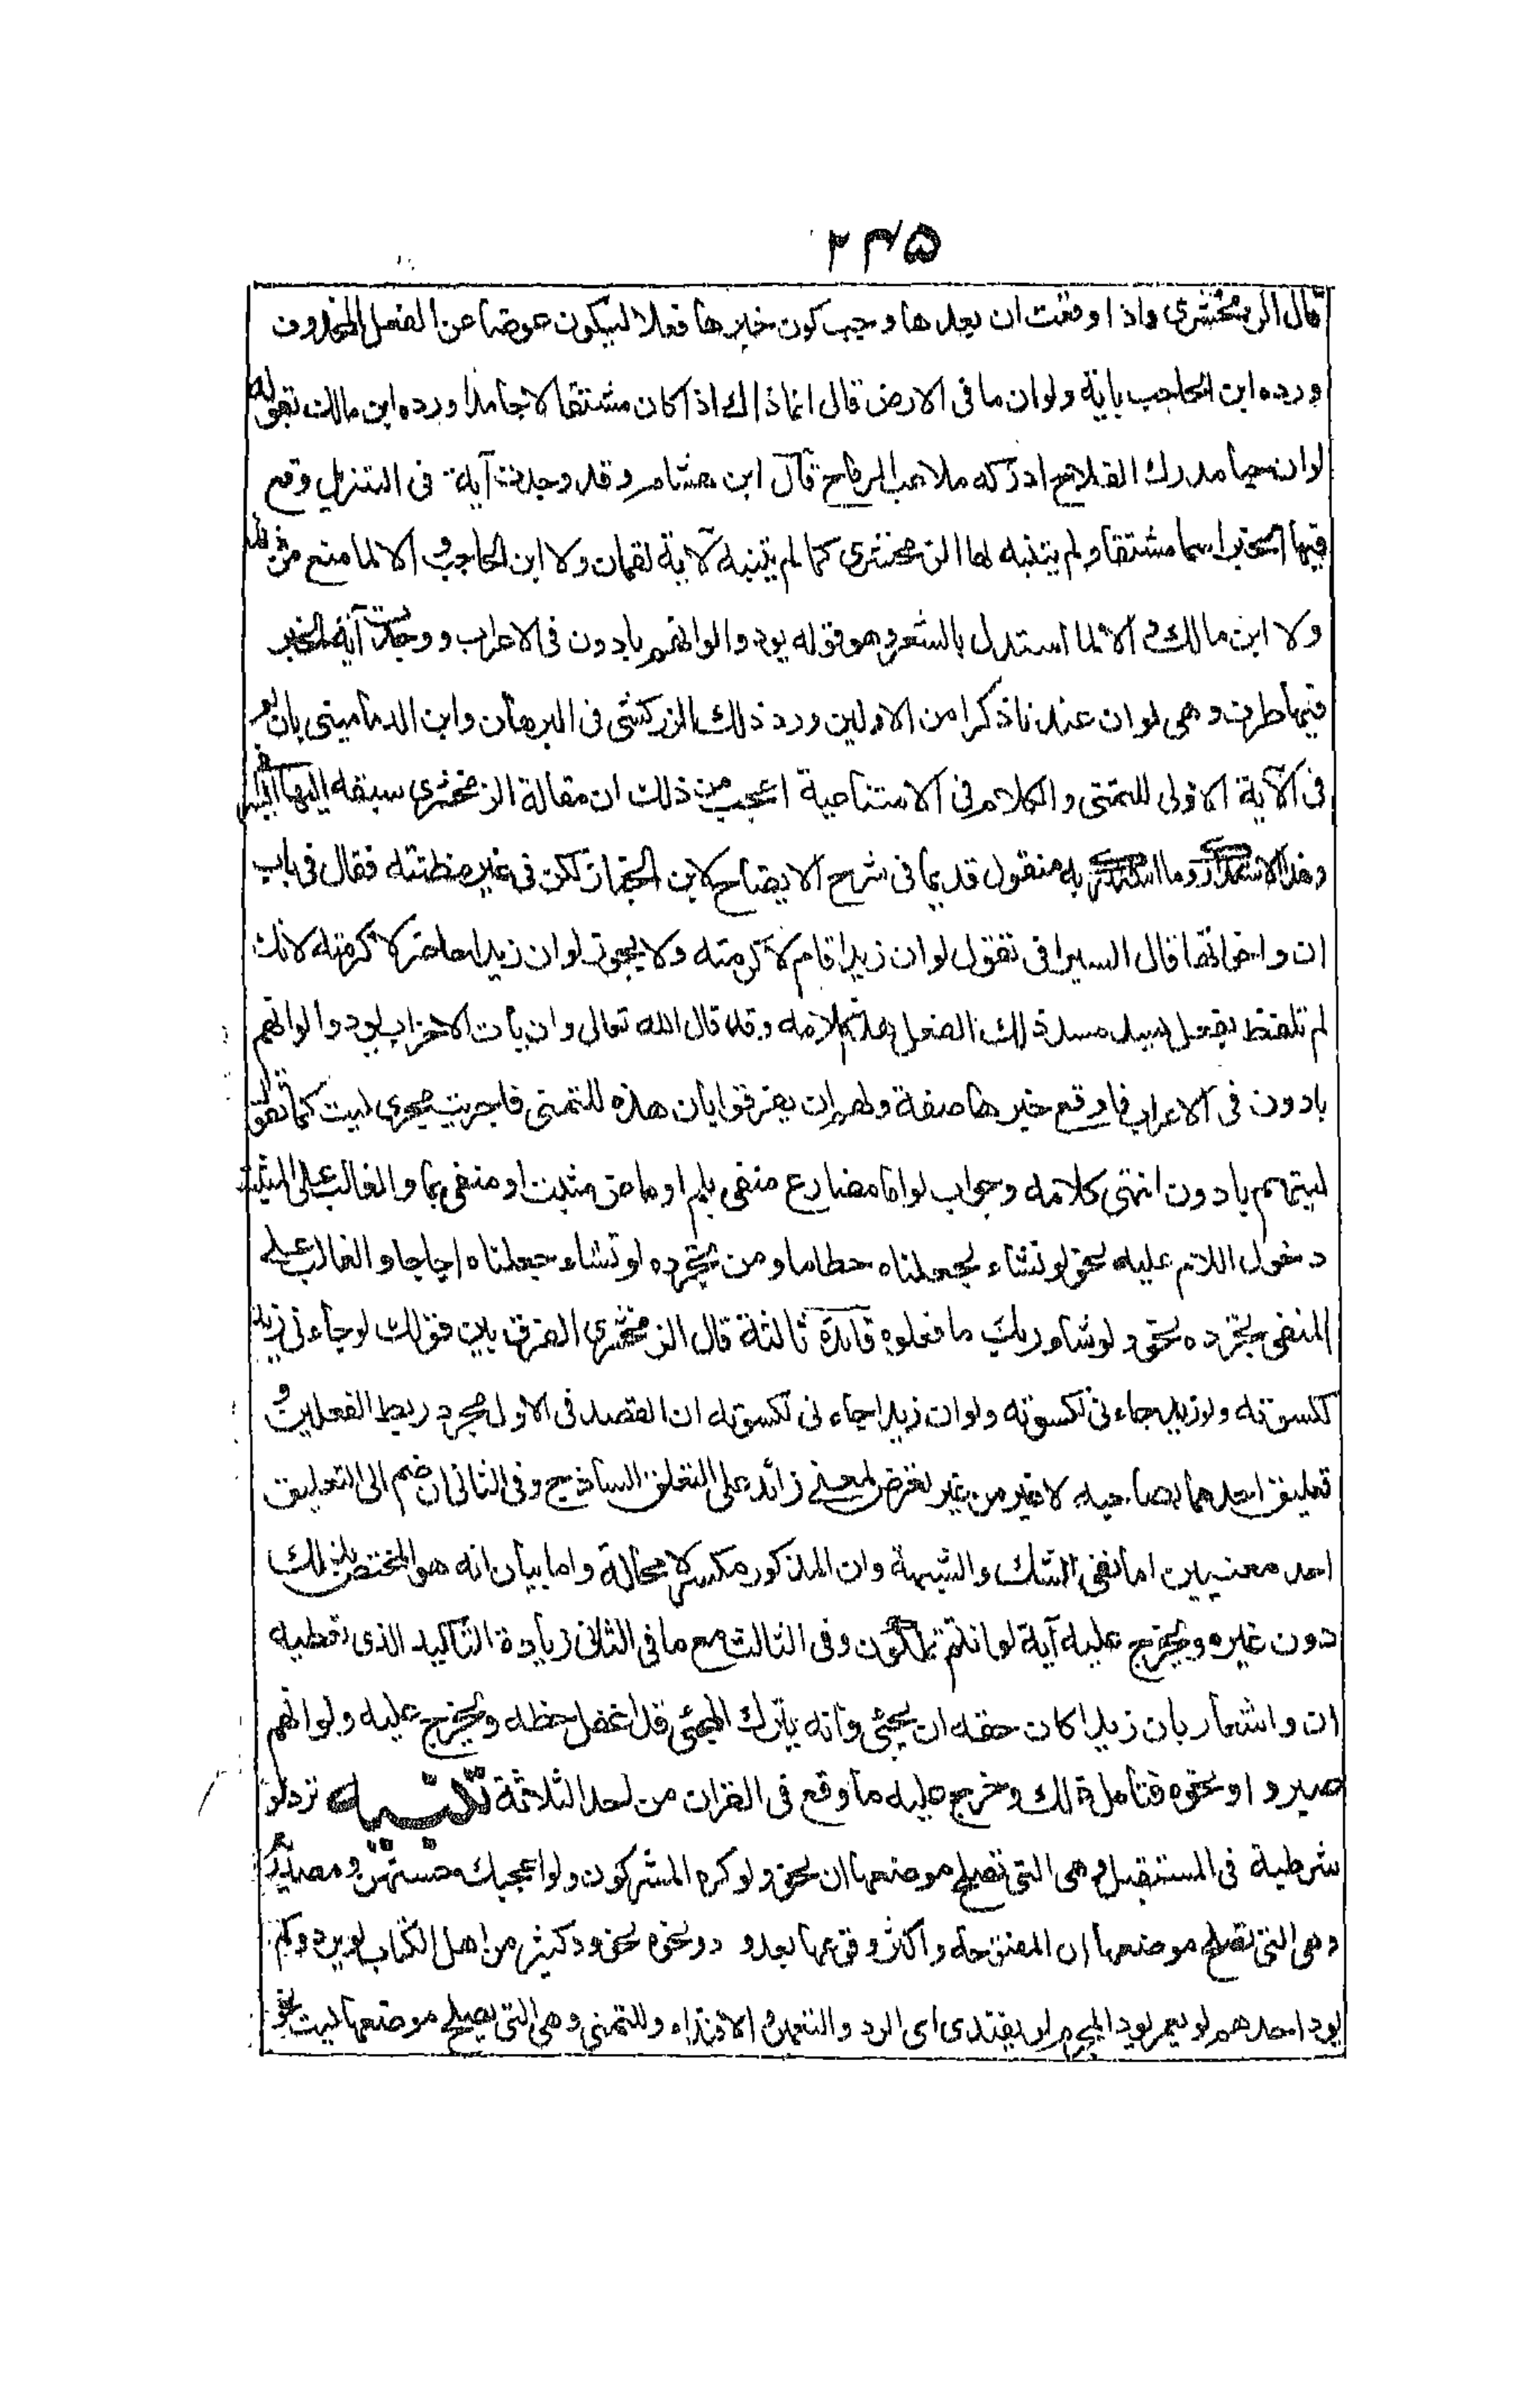 ٢٣٥
قال الزمخشري واذا وقعت ان بعدها وجب كون خبرها فعلا ليكون عوضا عن الفعل المحذوف
ورده ابن الحاجب باية ولو ان ما في الارض قال انما ذاك اذا كان مشتقا لا جامدا ورده ابن مالك بقوله
لو ان حيا مدرك الفلاح ادركه ملاعب الرماح قال ابن هشام وقد وجدت آية في التنزيل وقع
فيها الخبر اسما مشتقا ولم يتنبه لها الزمخشري كما لم يتنبه لآية لقمان ولا ابن الحاجب والا لما منع من ذلك
ولا ابن مالك والا لما استدل بالشعر وهو قوله يودوا لو انهم بادون في الاعراب ووجدت آية الخبر
فيها ظرف وهي لو ان عندنا ذكرا من الاولين ورد ذلك الزركشي في البرهان وابن الدماميني بان لو
في الآية الاولى للتمني والكلام في الامتناعية اعجب من ذلك ان مقالة الزمخشري سبقه اليها السيرافي
وهذا الاستدراك وما استدرك به منقول قديما في شرح الايضاح لابن الخباز لكن في غير مظنته فقال في باب
ان واخواتها قال السيرافي تقول لو ان زيدا قام لاكرمته ولا يجوز لو ان زيدا حاضر لاكرمته لانك
لم تلفظ بفعل يسد مسد ذلك الفعل هذا كلامه وقد قال الله تعالى وان يات الاحزاب يودوا لو انهم
بادون في الاعراب فاوقع خبرها صفة ولهم ان يفرقوا بان هذه للتمني فاجريت مجرى ليت كما تقول
ليتهم بادون انتهى كلامه وجواب لو اما مضارع منفي بلم او ماض مثبت او منفي بما والغالب على المثبت
دخول اللام عليه نحو لو نشاء لجعلناه حطاما ومن تجرده لو نشاء جعلناه اجاجا والغالب على
المنفي تجرده نحو ولو شاء ربك ما فعلوه فائدة ثالثة قال الزمخشري الفرق بين قولك لو جاءني زيد
لكسوته ولو زيد جاءني لكسوته ولو ان زيدا جاءني لكسوته ان القصد في الاول مجرد ربط الفعلين و
تعليق احدهما بصاحبه لا غير من غير تعرض لمعنى زائد على التعلق الساذج وفي الثاني ان ضم الى التعليق
احد معنيين اما نفي الشك والشبهة وان المذكور مكسو لا محالة واما بيان انه هو المختص بذلك
دون غيره ويخرج عليه آية لو انتم تملكون وفي الثالث مع ما في الثاني زيادة التاكيد الذي تعطيه
ان واشعار بان زيدا كان حقه ان يجئ وانه بترك المجئ قد اغفل حظه ويخرج عليه ولو انهم
صبروا ونحوه فتامل ذلك وخرج عليه ما وقع في القران من احد الثلاثة تنبيه ترد لو
شرطية في المستقبل وهي التي تصلح موضعها ان نحو ولو كره المشركون ولو اعجبك حسنهن ومصدرية
وهي التي تصلح موضعها ان المفتوحة واكثر وقوعها بعد ود ونحوه نحو ود كثير من اهل الكتاب لو يردونكم
يود احدهم لو يعمر يود المجرم لو يفتدى اى الرد والتعمير والافتداء وللتمني وهي التي يصلح موضعها ليت نحو